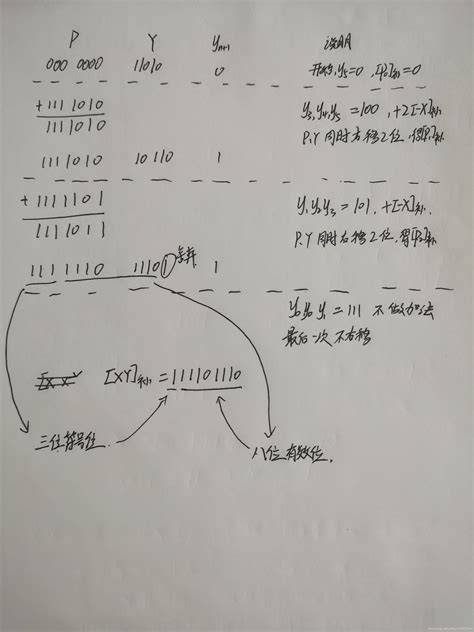 P Y yn+1 说明
000 0000 11010 0 开始,y5=0,[P0]补=0
+111 1010 y3y4y5 = 100, +2[-X]补
111 1010 P,Y同时右移2位,得[P1]补
111 1010 10110 1
+111 1101 y1y2y3 = 101, +[-X]补
111 1011 P,Y同时右移2位,得[P2]补
111 1110 1110① 丢弃 1
y0y0y1 = 111 不做加法
最后一次不右移
[XY]补 = 111101110
三位符号位 八位有效位.